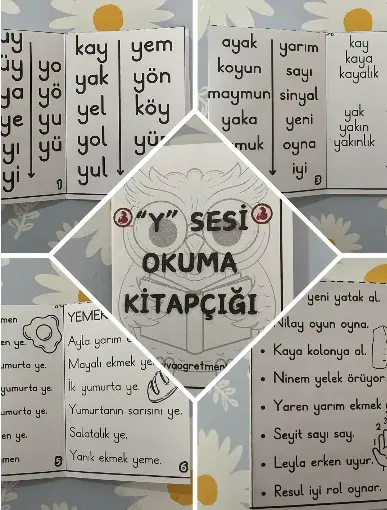 yo
yö
ya
yu
ye
yü
yı
yi
1
kay
yem
yak
yön
yel
köy
yol
yul
ayak
yarım
koyun
sayı
maymun
sinyal
yaka
yeni
oyna
iyi
3
kay
kaya
kayalık
yak
yakın
yakınlık
"Y" SESİ
OKUMA
KİTAPÇIĞI
YEMEK
Ayla yarım
Mayalı ekmek ye.
İki yumurta ye.
Yumurtanın sarısını ye.
Salatalık ye.
Yanık ekmek yeme.
ye.
yumurta ye.
yumurta ye.
ye.
5
6
yeni yatak al.
Nilay oyun oyna.
Kaya kolonya al.
Ninem yelek örüyor
Yaren yarım ekmek
Seyit sayı say.
Leyla erken uyur.
Resul iyi rol oynar.